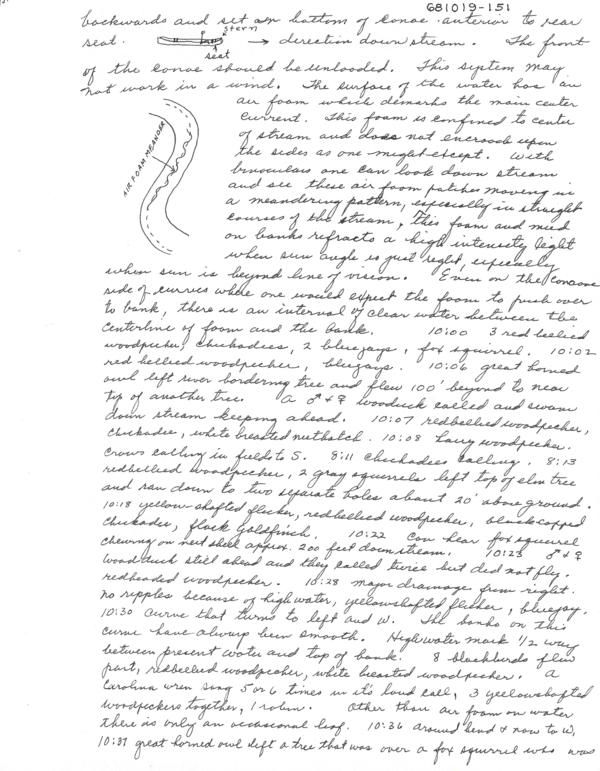 681019-151
backwards and set on bottom of canoe anterior to rear
stern
seat. → direction down stream. The front
seat
of the canoe should be unloaded. This system may
not work in a wind. The surface of the water has an
air foam which demarks the main center
current. This foam is confined to center
of stream and does not encroach upon
the sides as one might except. With
AIR FOAM MEANDER
binoculars one can look down stream
and see these air foam patches moving in
a meandering pattern, especially in straight
courses of the stream, this foam and mud
on banks refracts a high intensity light
when sun angle is just right, especially
when sun is beyond line of vision. Even on the concave
side of curves where one would expect the foam to push over
to bank, there is an interval of clear water between the
centerline of foam and the bank. 10:00 3 red bellied
woodpecker, chickadees, 2 bluejays, fox squirrel. 10:02
red bellied woodpecker, bluejays. 10:06 great horned
owl left river bordering tree and flew 100' beyond to near
top of another tree. A ♂ + ♀ woodduck called and swam
down stream keeping ahead. 10:07 redbellied woodpecker,
chickadee, white breasted nuthatch. 10:08 hairy woodpecker.
Crows calling in fields to S. 8:11 chickadees calling. 8:13
redbellied woodpecker, 2 gray squirrels left top of elm tree
and ran down to two separate holes about 20' above ground.
10:18 yellow-shafted flicker, redbellied woodpecker, black capped
chickadee, flock goldfinch. 10:22 Can hear fox squirrel
chewing on nut shell approx. 200 feet down stream. 10:23 ♂ + ♀
woodduck still ahead and they called twice but did not fly.
redheaded woodpecker. 10:28 major drainage from right.
no ripples because of high water, yellowshafted flicker, bluejay.
10:30 curve that turns to left and W. The banks on this
curve have always been smooth. High water mark 1/2 way
between present water and top of bank. 8 blackbirds flew
past, redbellied woodpecker, white breasted woodpecker. A
Carolina wren sang 5 or 6 times in it's loud call, 3 yellowshafted
woodpeckers together, 1 robin. Other than air foam on water
there is only an occasional leaf. 10:36 around bend + now to W,
10:37 great horned owl left a tree that was over a fox squirrel who was